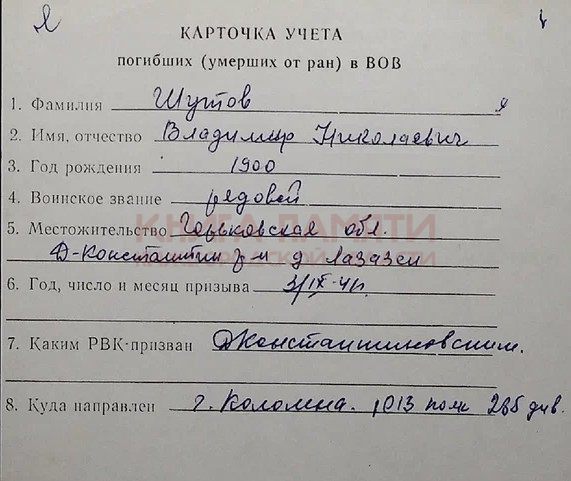 КАРТОЧКА УЧЕТА
погибших (умерших от ран) в ВОВ
1. Фамилия Шутов
2. Имя, отчество Владимир Николаевич
3. Год рождения 1900
4. Воинское звание рядовой
КНИГА ПАМЯТИ
5. Местожительство Горьковская обл.
Д-Константин р-н д Лазазей
6. Год, число и месяц призыва 3/IX-41г.
7. Каким РВК-призван Дконстантиновским.
8. Куда направлен г. Коломна. 1013 полк 285 див.